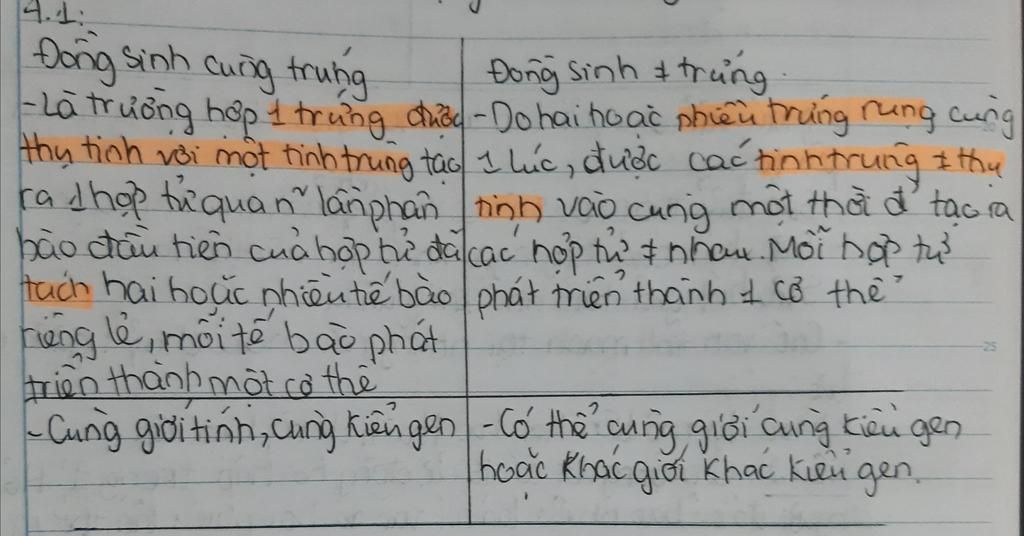 4.1:
Đồng sinh cùng trứng
-Là trường hợp 1 trứng được
thụ tinh với một tinh trùng tạo
ra 1 hợp tử qua n lần phân
bào đầu tiên của hợp tử đã
tách hai hoặc nhiều tế bào
riêng lẻ, mỗi tế bào phát
triển thành một cơ thể
-Cùng giới tính, cùng kiểu gen
Đồng sinh ≠ trứng.
-Do hai hoặc nhiều trứng rụng cùng
1 lúc, được các tinh trùng ≠ thụ
tinh vào cùng một thời đ' tạo ra
các hợp tử ≠ nhau. Mỗi hợp tử
phát triển thành 1 cơ thể
-Có thể cùng giới cùng kiểu gen
hoặc khác giới khác kiểu gen.
25